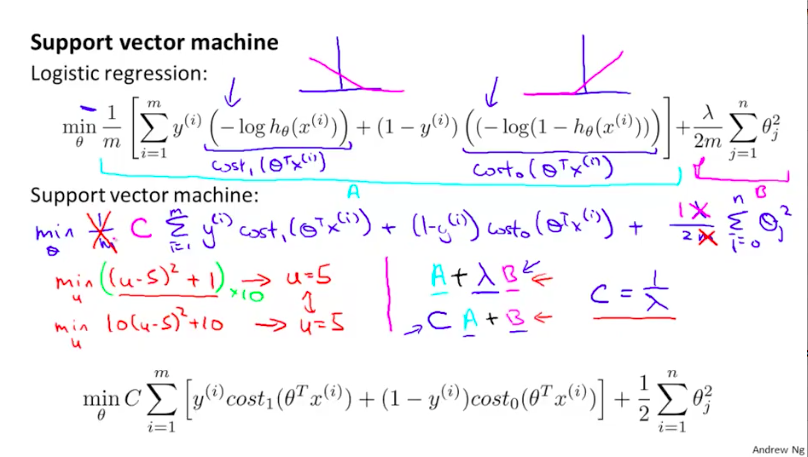 Support vector machine
Logistic regression:
min_θ 1/m [ ∑_{i=1}^{m} y^{(i)} (−log h_θ(x^{(i)})) + (1 − y^{(i)}) ((−log(1 − h_θ(x^{(i)}))) ] + λ/2m ∑_{j=1}^{n} θ_j^2
cost₁(θᵀx^{(i)}) cost₀(θᵀx^{(i)})
A B
Support vector machine:
min_θ 1/m C ∑_{i=1}^{m} y^{(i)} cost₁(θᵀx^{(i)}) + (1-y^{(i)}) cost₀(θᵀx^{(i)}) + 1/2m ∑_{i=0}^{n} θ_j^2
min_u ((u-5)² + 1) ×10 → u=5 A + λB ← C = 1/λ
min_u 10(u-5)²+10 → u=5 → CA + B ←
min_θ C ∑_{i=1}^{m} [ y^{(i)} cost₁(θᵀx^{(i)}) + (1 − y^{(i)}) cost₀(θᵀx^{(i)}) ] + 1/2 ∑_{i=1}^{n} θ_j^2
Andrew Ng